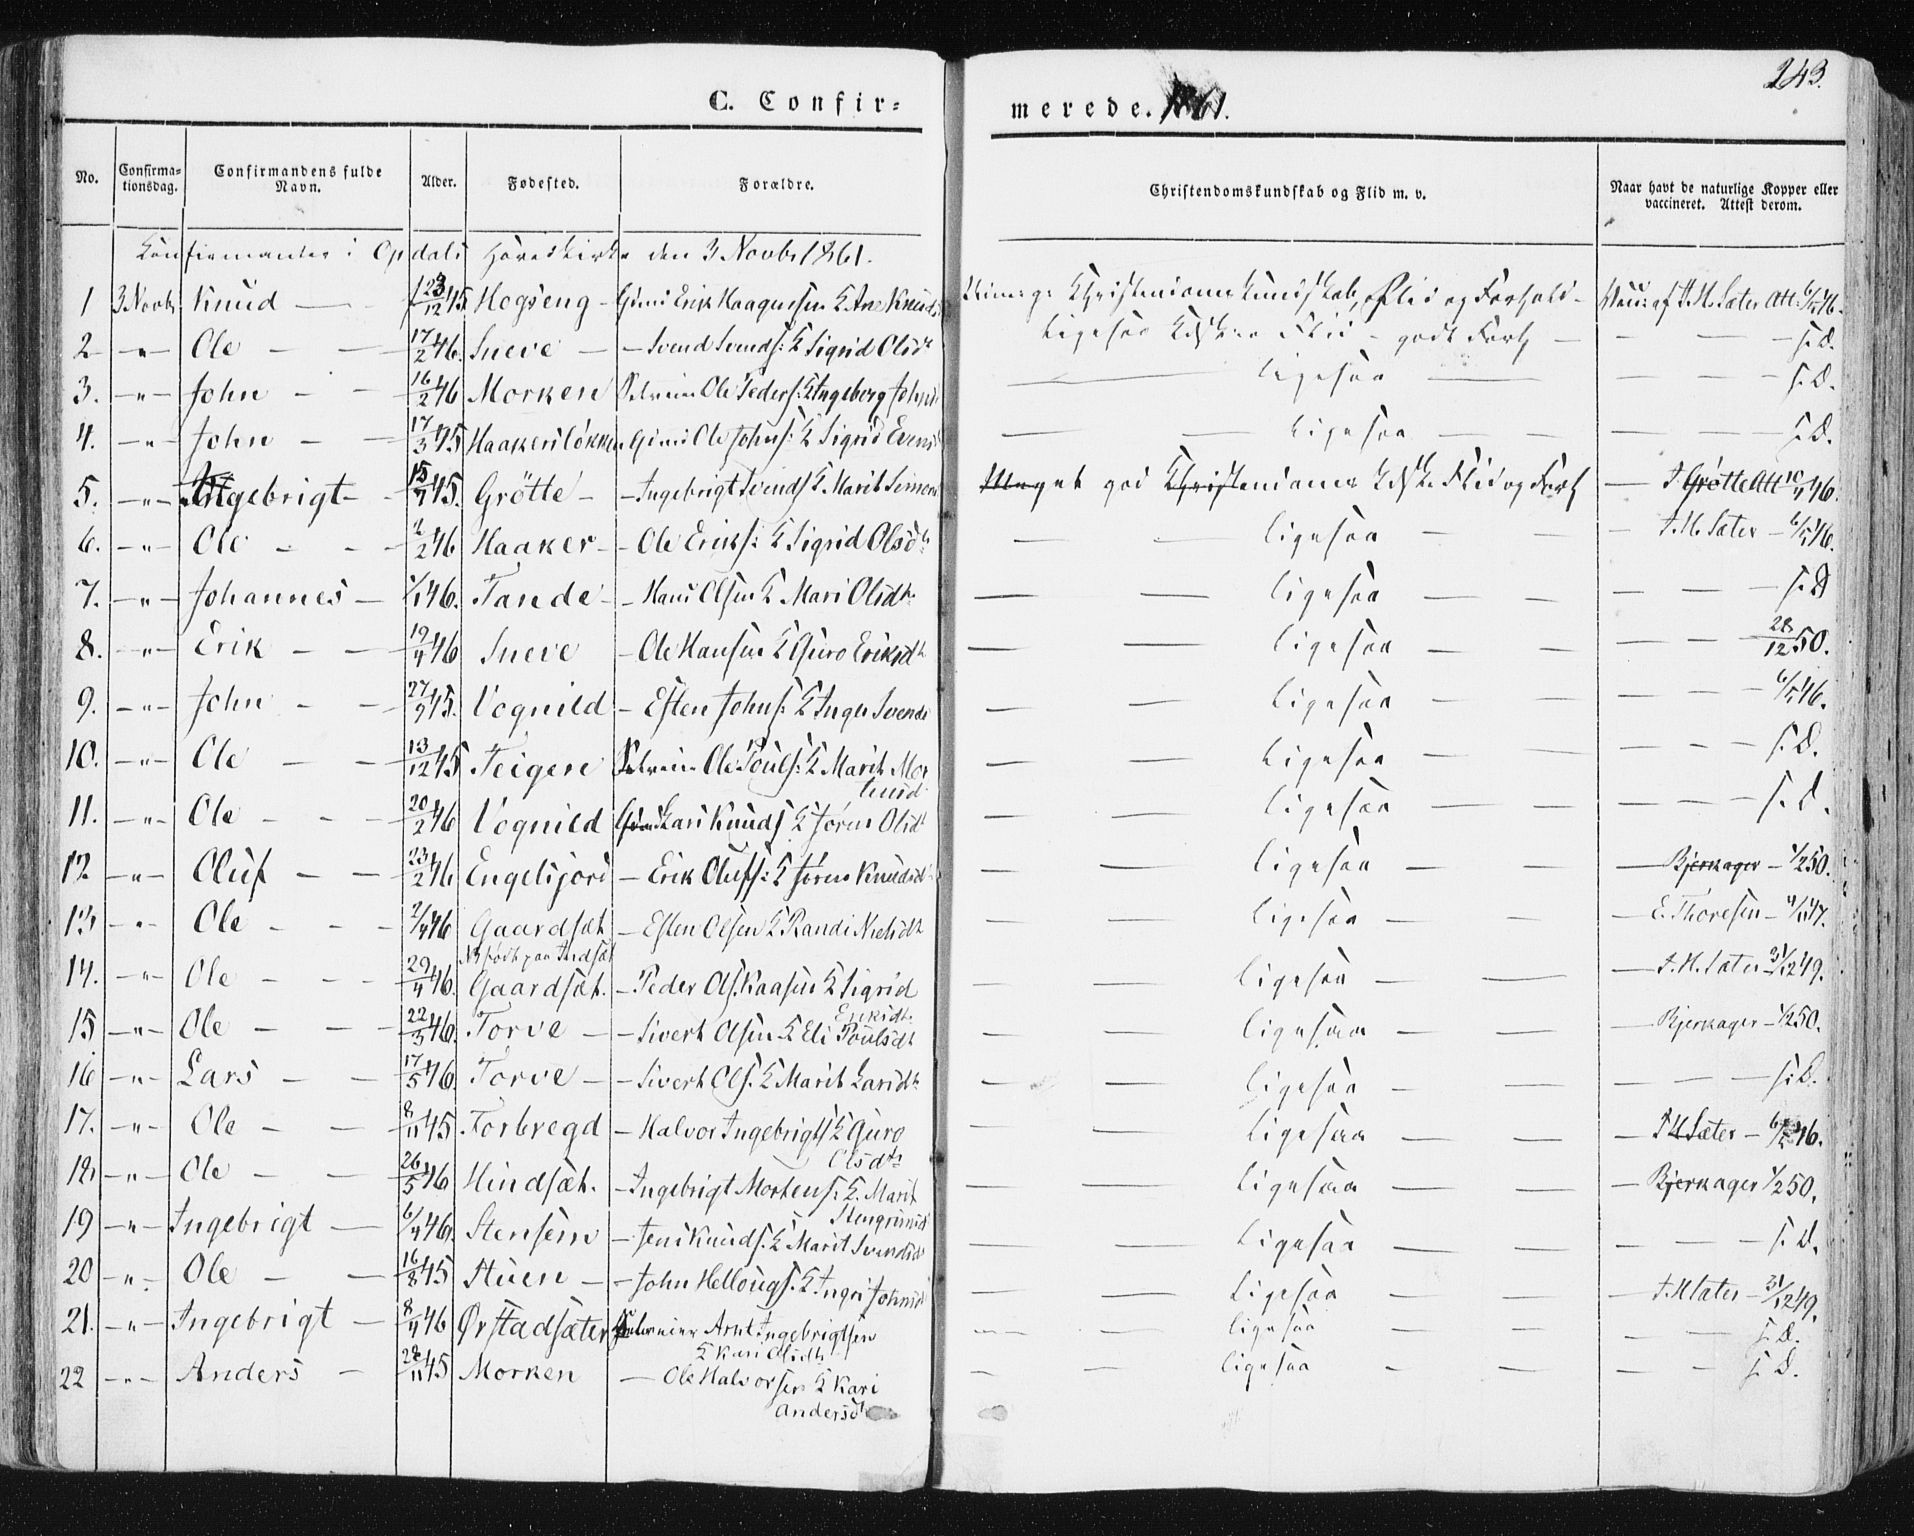 243.
C. Confir=
merede. 1861.
No. Confirma-tionsdag. Confirmandens fulde Navn. Alder. Fødested. Forældre. Christendomskundskab og Flid m. v. Naar havt de naturlige Kopper eller vaccineret. Attest derom.
Confirmanter i Opdals Hovedkirke den 3 Novbr 1861.
1 3 Novbr Knud — 23/12 45 Hogseng — Gmd Erik Haagensen & Ane Knudsd Christendoms Kundskab, Flid og Forhold — Vacc: af J. H. Sæter Att: 6/7 46.
2 — " — Ole — — 17/2 46. Sneve — — Svend Svends: & Sigrid Olsdt Ligesaa Flid — godt Forh — — — — s. D.
3. — " — John — — 16/2 46 Morken Ole Peders: & Ingeborg Johnsd — ligesaa — — — — s. D.
4. — " — John — — 17/3 45 Haakersløkken Gmd Ole Johns: & Sigrid Evensd — ligesaa — — — — — s. D.
5. — " — Ingebrigt — 15/7 45. Grøtte — — Ingebrigt Svends & Marit Simens Meget god Christendoms Kdsk. Flid og Forh — J. Grøtte Att 10/7 46.
6. — " — Ole — — 2/2 46 Haaker — — Ole Eriks: & Sigrid Olsdt — — ligesaa — — — J. H. Sæter — 6/7 46.
7. — " — Johannes — 1/1 46. Tande — — Hans Olsen & Mari Olsdt — — ligesaa — — — — — s. D
8. — " — Erik — — 19/4 46 Sneve — Ole Hansen & Guro Eriksdt — — ligesaa — — — — 28/12 50.
9. — " — John — — 27/9 45. Vognild — Esten Johns: & Inger Svends — — ligesaa — — — — — 6/7 46.
10. — " — Ole — — 13/12 45 Teigen Ole Pouls: & Marit Mortensd — — ligesaa — — — — — s. D.
11. — " — Ole — — 20/2 46 Vognild Lars Knuds & Jøren Olsdt — — ligesaa — — — — — s. D.
12 — " — Oluf — — 23/2 46 Engelsjord — Erik Olufs: & Jøren Knudsdt — — ligesaa — — — Bjerkager — 1/2 50.
13 — " — Ole — — 2/4 46 Gaardsæt — Esten Olsen & Randi Nielsdt — — ligesaa — — — E. Thoresen — 4/11 47.
14. — " — Ole — — 29/4 46. NB født paa Indsæt Gaardsæt. — Peder Ols. Kaasen & Sigrid Eriksdt. — — ligesaa — — — J. H. Sæter 31/12 49.
15 — " — Ole — — 22/3 46. Torve — — Sivert Olsen & Eli Poulsdt — — ligesaa — — — Bjerkager — 1/2 50.
16 — " — Lars — — 17/5 46. Torve — — Sivert Ols. & Marit Larsdt — — ligesaa — — — — — s. D.
17. — " — Ole — — 8/11 45. Forbregd — Halvor Ingebrigts & Guro Olsdt — — ligesaa — — — J H Sæter — 6/7 46.
18 — " — Ole — — 26/5 46 Hindsæt. — Ingebrigt Mortens: & Marit Stengrimsd — — ligesaa — — — Bjerkager 1/2 50.
19 — " — Ingebrigt — 6/4 46. Stensem — Jens Knuds. & Marit Svendsdt — — ligesaa — — — — — s. D.
20 — " — Ole — — 16/8 45 Stuen — — John Hellougs. & Ingri Johnsd — — ligesaa — — — J. H Sæter — 31/12 49.
21. — " — Ingebrigt — 8/4 46 Ørstadsæter Arnt Ingebrigtsen & Kari Olsdt — — ligesaa — — — — s. D.
22 — " — Anders — 28/11 45 Morken — Ole Halvorsen & Kari Andersdt — — ligesaa — — — — s. D.